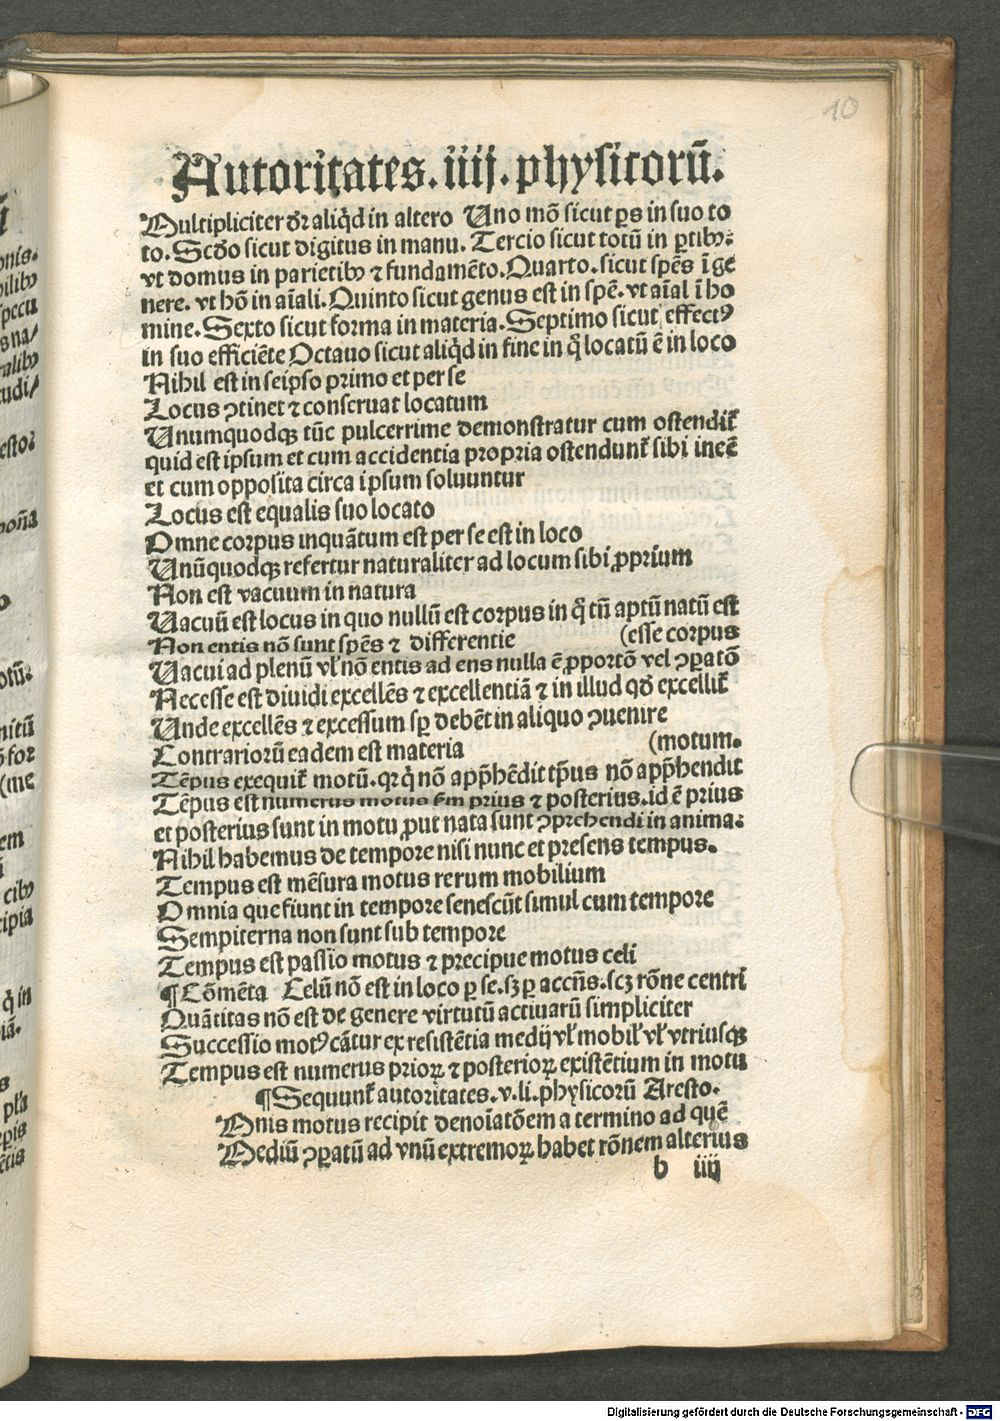 10
Autoritates. iiij. physicorū.
Multipliciter dr̄ aliq̇d in altero Uno mō sicut ꝑs in suo to
to. Scd̄o sicut digitus in manu. Tercio sicut totū in ꝑtibꝫ:
vt domus in parietibꝫ ⁊ fundamēto. Quarto. sicut spēs ī ge
nere. vt hō in aīali. Quinto sicut genus est in spē. vt aīal ī ho
mine. Sexto sicut forma in materia. Septimo sicut effectꝰ
in suo efficiēte Octauo sicut aliq̇d in fine in q̄ locatū ē in loco
Nihil est in seipso primo et per se
Locus ꝯtinet ⁊ conseruat locatum
Unumquodqꝫ tūc pulcerrime demonstratur cum ostendit̄
quid est ipsum et cum accidentia propria ostendunt̄ sibi ineē
et cum opposita circa ipsum soluuntur
Locus est equalis suo locato
Omne corpus inquātum est per se est in loco
Unūquodqꝫ refertur naturaliter ad locum sibi ꝓprium
Non est vacuum in natura
Uacuū est locus in quo nullū est corpus in q̄ tū aptū natū est
Non entis nō sunt spēs ⁊ differentie (esse corpus
Uacui ad plenū vl̄ nō entis ad ens nulla ē ꝓportō vel ꝯꝑatō
Necesse est diuidi excellēs ⁊ excellentiā ⁊ in illud qd̄ excellit̄
Unde excellēs ⁊ excessum sꝑ debēt in aliquo ꝯuenire
Contrariorū eadem est materia (motum.
Tēpus exequit̄ motū. qꝛ q̇ nō app̄hēdit tp̄us nō app̄hendit
Tēpus est numerus motus sm̄ prius ⁊ posterius. id ē prius
et posterius sunt in motu ꝓut nata sunt ꝯprehendi in anima:
Nihil habemus de tempore nisi nunc et presens tempus.
Tempus est mēsura motus rerum mobilium
Omnia que fiunt in tempore senescūt simul cum tempore
Sempiterna non sunt sub tempore
Tempus est passio motus ⁊ precipue motus celi
¶ Cōmēta Celū nō est in loco ꝑ se. sꝫ ꝑ accn̄s. scꝫ rōne centri
Quātitas nō est de genere virtutū actiuarū simpliciter
Successio motꝰ cātur ex resistētia medij vl̄ mobil̄ vl̄ vtriusqꝫ
Tempus est numerus prioꝝ ⁊ posterioꝝ existētium in motu
¶ Sequunt̄ autoritates. v. li. physicorū Aresto.
Omnis motus recipit denoīatōem a termino ad quē
Mediū ꝯꝑatū ad vnū extremoꝝ habet rōnem alterius
b iiij
Digitalisierung gefördert durch die Deutsche Forschungsgemeinschaft - DFG